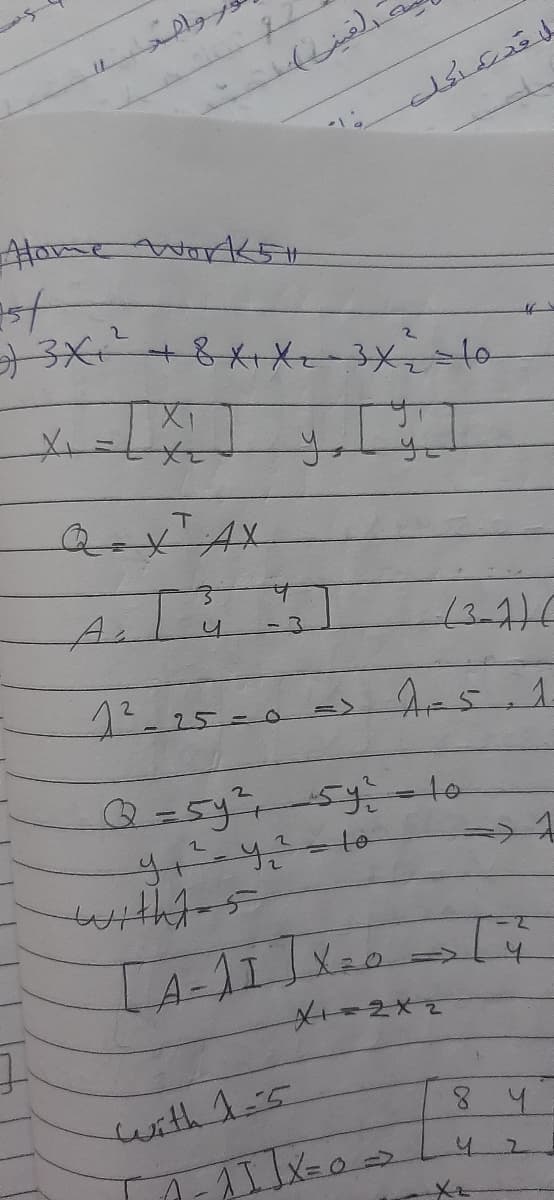 الحل
Home Work 5 "
3x₁² + 8x₁x₂ - 3x₂² = 10
X₁ = [x₁ x₂] y = [y₁ y₂]
Q = Xᵀ A X
A = [3 4 4 -3] (3-λ)(
λ² - 25 = 0 => λ₁ = 5 , λ
Q = 5y₁² - 5y₂² = 10
y₁² - y₂² = 10 => λ
with λ = 5
[A - λI] X = 0 => [-2 4
x₁ = 2x₂
with λ = -5
[A - λI] X = 0 => [8 4 4 2
x₂